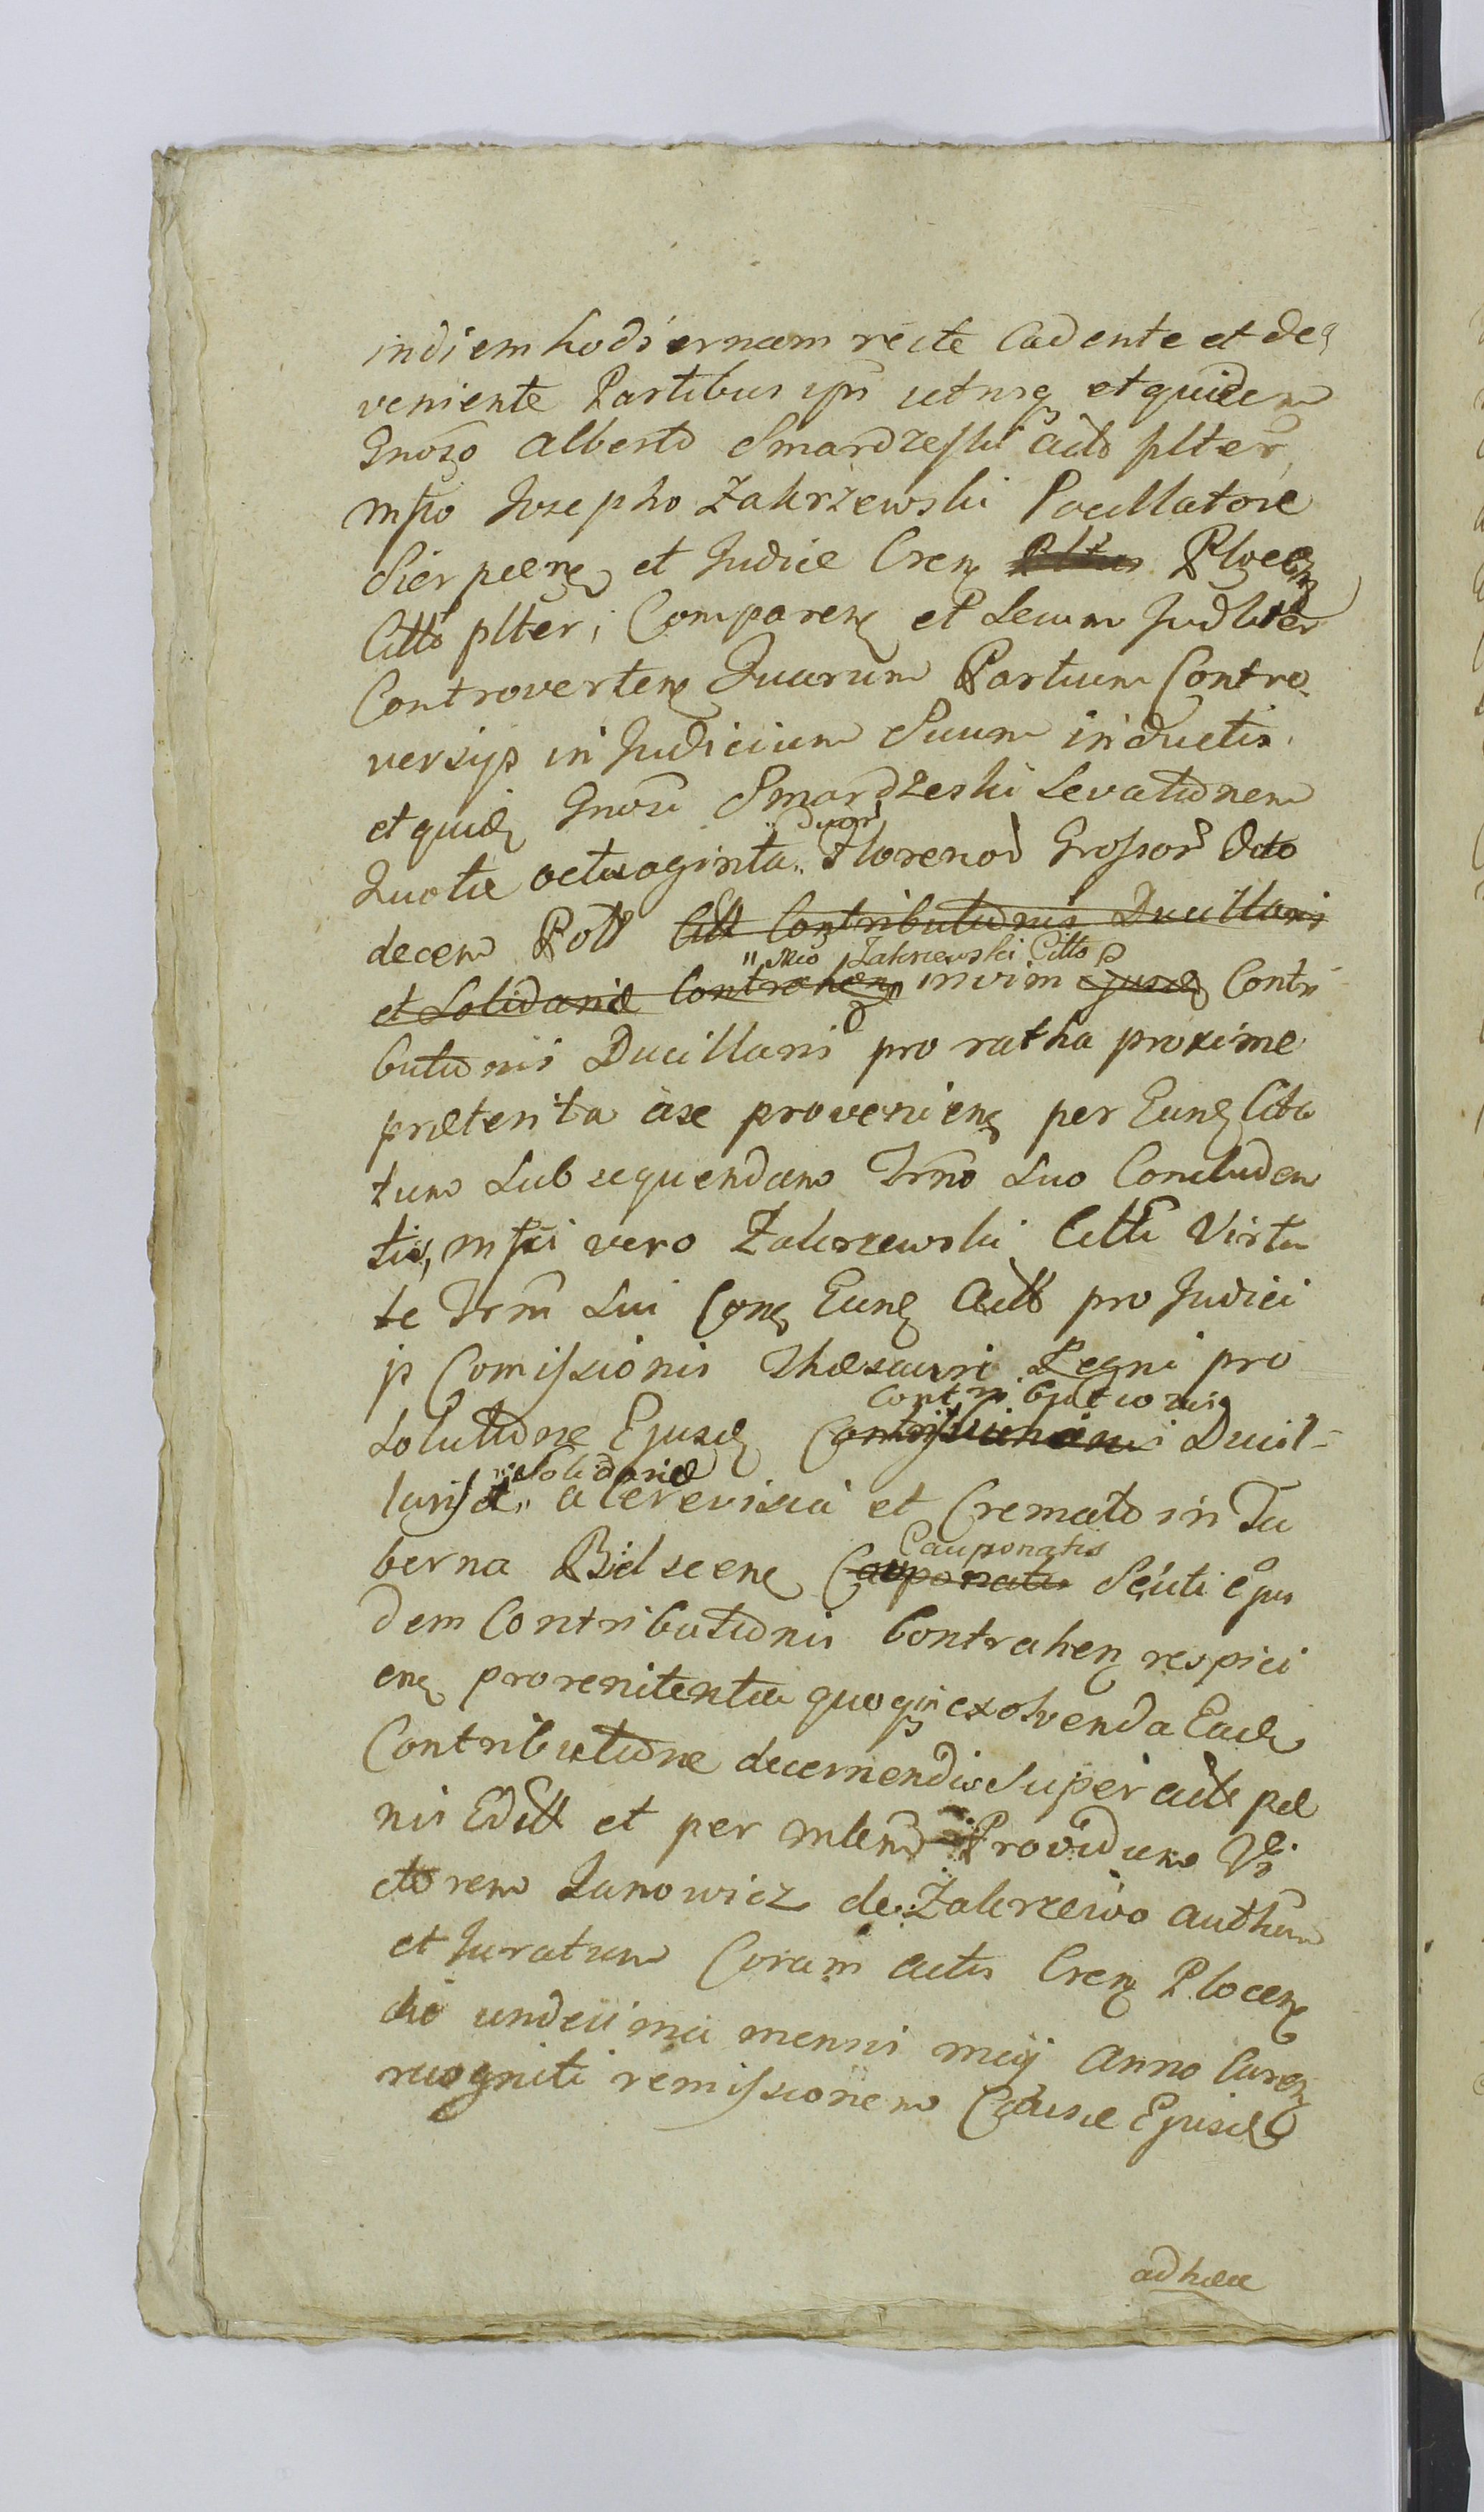 in diem hodiernam recte Cadente et de=
veniente Partibus ipsis utrisq et quidem
Gnoso Alberto Smardzeski acto plter,
mfco Josepho Zakrzewski Pocillatore
Sierpcen et Judice Cren Plocen
Citto plter, Comparen et secum Judlter
Controverten Quarum Partium Contro-
versijs in Judicium Suum inductis.
et quid Gnosi Smardzeski Levationem
duor
Quotae octuaginta Florenor Grossor Octo
decem Poll Citt Contributionis Ducillaris
Mco Zakrzewski Citto
et Solidariae Contrahen in vim ejusd Contri
butionis Ducillaris pro ratha proxime
praeterita a se provenien per Eund Cita
tum subsequendam Trno suo Concluden
tis, mfci vero Zakrzewski Citti Virtu
te Trni sui Con Eund Actt pro Judici
js Comissionis Thesauri Regni pro
Contributionis
solutione Ejusd Ducil-
Solidariae
laris et a Cerevisia et Cremato in Ta
Cauponatis
berna Bielscen Cauponatis Sicuti ejus
dem Contributionis Contrahen respici
en pro renitentia quoq in exolvenda Ead
Contributione decernendis super acte poe
nis Edill et per mlem Providum Vi
ctorem Janowicz de Zakrzewo authum
et Juratum Coram actis Cren Plocen
die undecima mensis maij Anno Curen
recogniti remissionem Causae Ejusd
ad haec